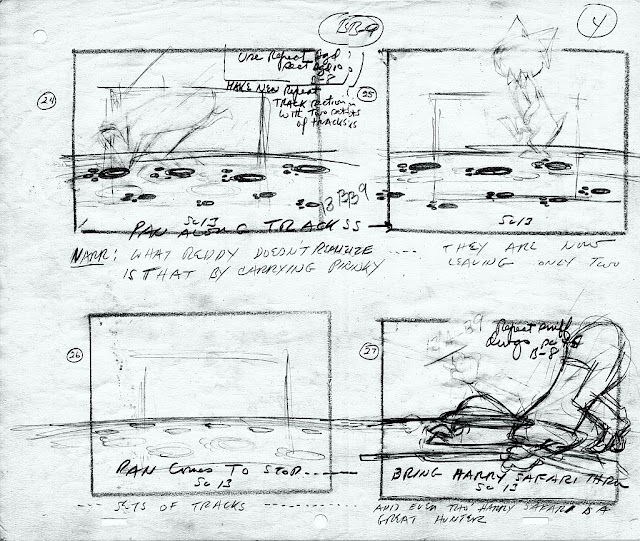 BB-9
4
Use Repeat
B-8
MAKE NEW Repeat
TRACK section
with Two sets
of TRACKS
24
25
BB9
Sc 13
PAN ALONG TRACKS
Sc 13
NARR: WHAT REDDY DOESN'T REALIZE ----
IS THAT BY CARRYING PINKY
THEY ARE NOW
LEAVING ONLY TWO
26
27
B-8
PAN COMES TO STOP
Sc 13
BRING HARRY SAFARI THRU
Sc 13
SETS OF TRACKS
AND EVEN THO HARRY SAFARI IS A
GREAT HUNTER